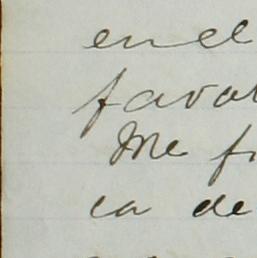 en el
favo
Me fi
ca de